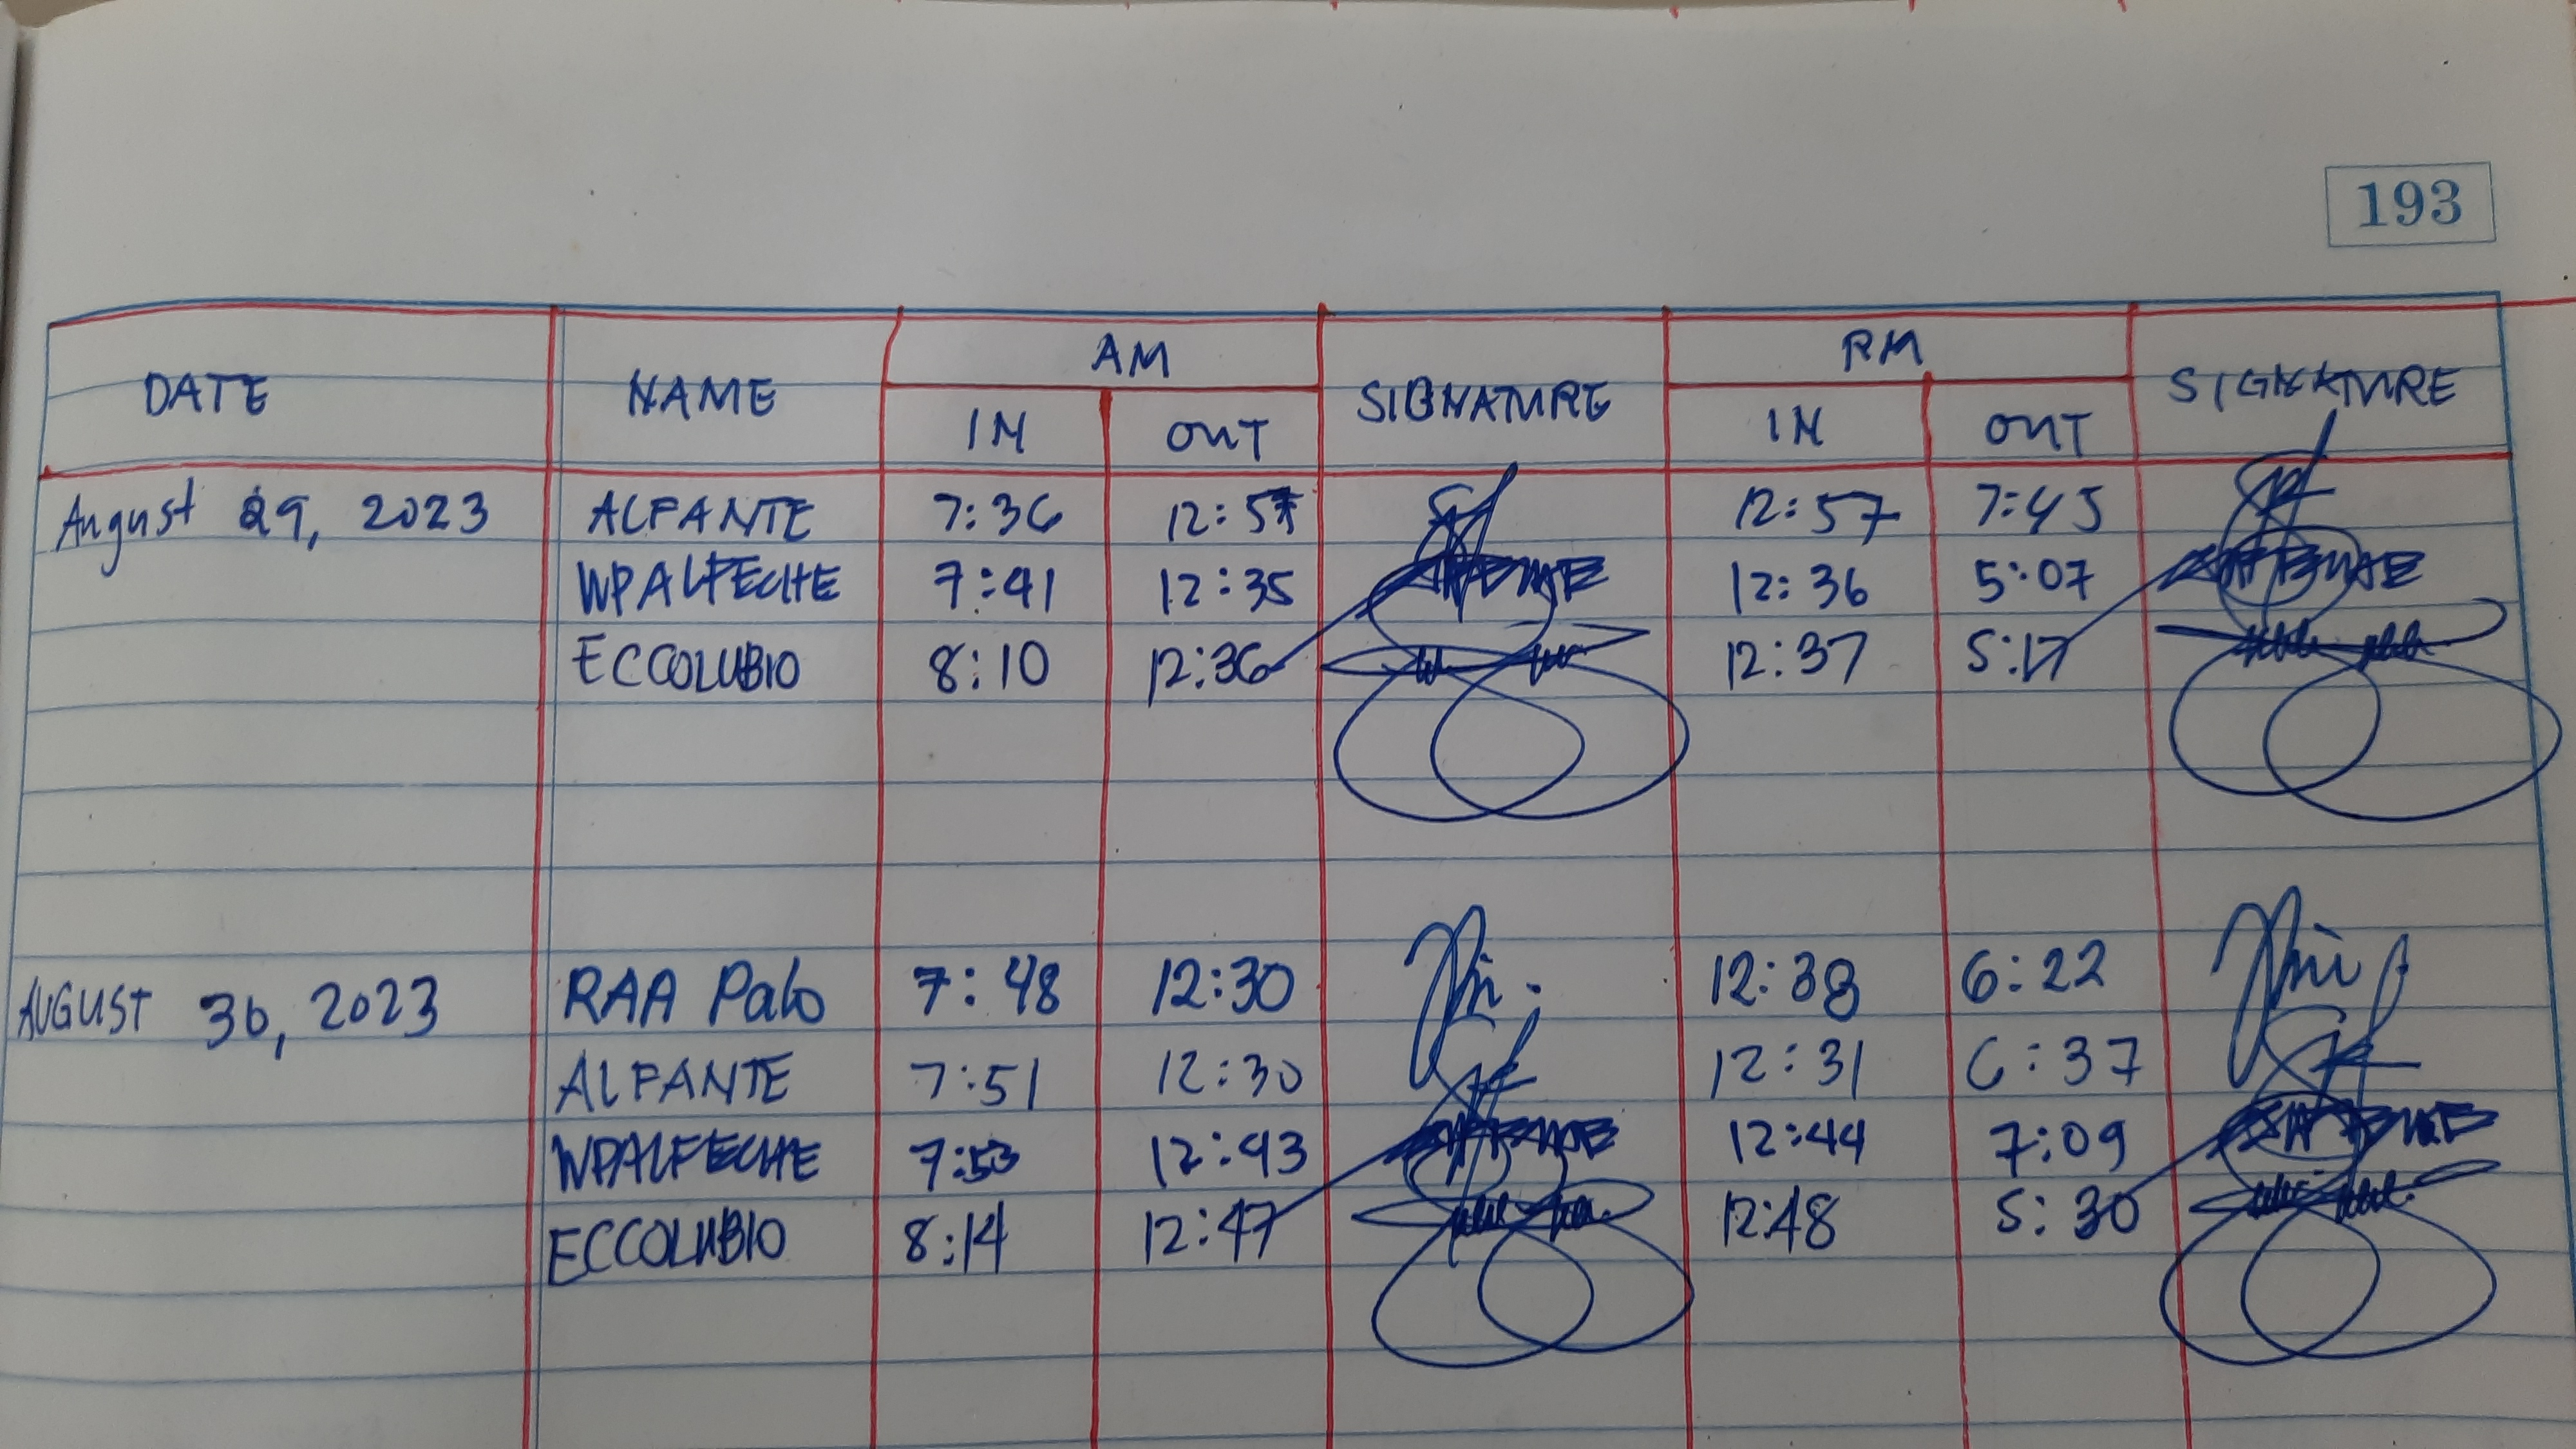 193
DATE NAME AM SIGNATURE PM SIGNATURE
IN OUT IN OUT
August 29, 2023 ALFANTE 7:36 12:57 12:57 7:45
WPALFECHE 7:41 12:35 12:36 5:07
ECCOLUBIO 8:10 12:36 12:37 5:17
AUGUST 30, 2023 RAA Palo 7:48 12:30 12:38 6:22
ALFANTE 7:51 12:30 12:31 6:37
WPALFECHE 7:53 12:43 12:44 7:09
ECCOLUBIO 8:14 12:47 12:48 5:30